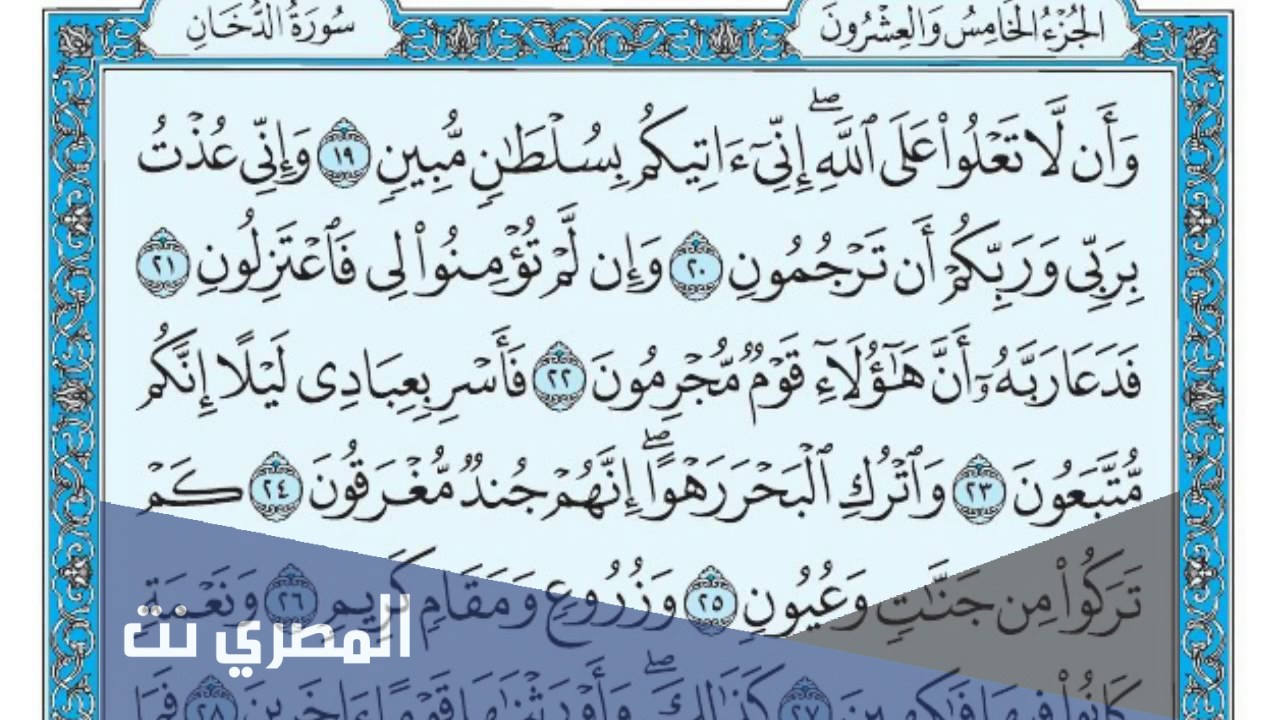 سُورَةُ الدُّخَانِ
الجُزْءُ الخَامِسُ وَالعِشْرُونَ
وَأَن لَّا تَعْلُوا۟ عَلَى ٱللَّهِ ۖ إِنِّىٓ ءَاتِيكُم بِسُلْطَٰنٍ مُّبِينٍ ١٩ وَإِنِّى عُذْتُ
بِرَبِّى وَرَبِّكُمْ أَن تَرْجُمُونِ ٢٠ وَإِن لَّمْ تُؤْمِنُوا۟ لِى فَٱعْتَزِلُونِ ٢١
فَدَعَا رَبَّهُۥٓ أَنَّ هَٰٓؤُلَآءِ قَوْمٌ مُّجْرِمُونَ ٢٢ فَأَسْرِ بِعِبَادِى لَيْلًا إِنَّكُم
مُّتَّبَعُونَ ٢٣ وَٱتْرُكِ ٱلْبَحْرَ رَهْوًا ۖ إِنَّهُمْ جُندٌ مُّغْرَقُونَ ٢٤ كَمْ
تَرَكُوا۟ مِن جَنَّٰتٍ وَعُيُونٍ ٢٥ وَزُرُوعٍ وَمَقَامٍ كَرِيمٍ ٢٦ وَنَعْمَةٍ
كَانُوا۟ فِيهَا فَٰكِهِينَ ٢٧ كَذَٰلِكَ ۖ وَأَوْرَثْنَٰهَا قَوْمًا ءَاخَرِينَ ٢٨ فَمَا
المصري نت